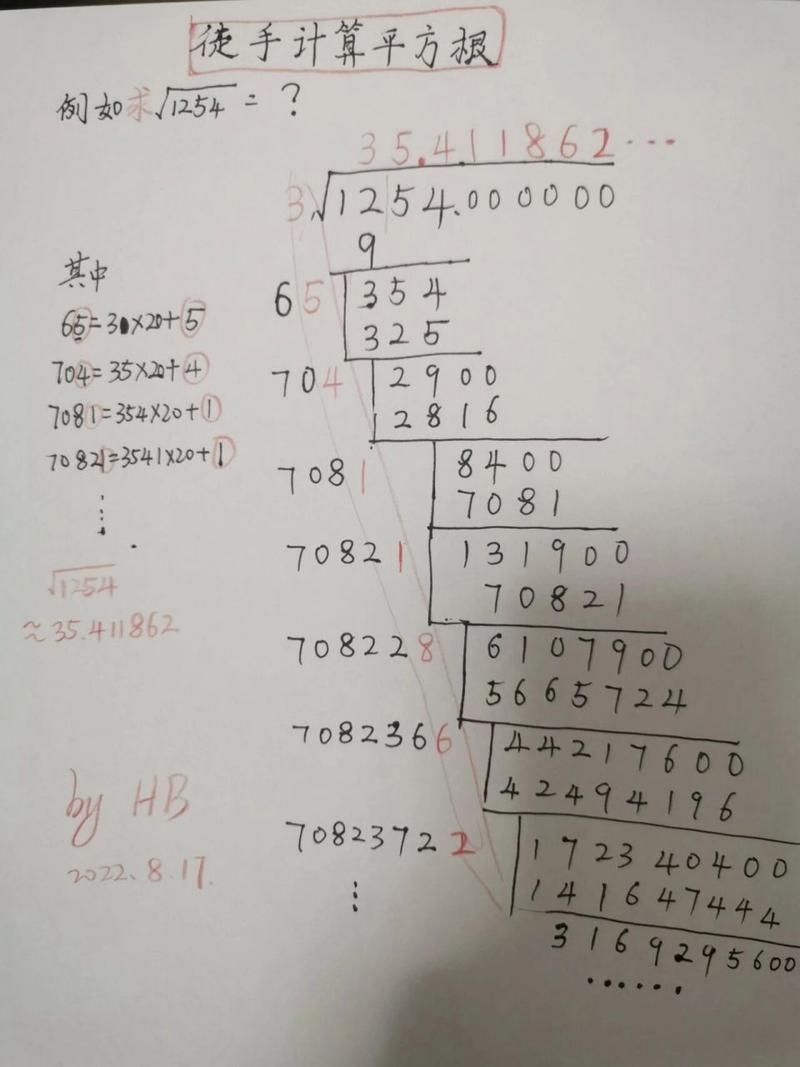 徒手计算平方根
例如求√1254 = ?
35.411862···
3√1254.000000
9
65 354
325
704 2900
2816
7081 8400
7081
70821 131900
70821
708228 6107900
5665724
7082366 44217600
42494196
70823722 172340400
141647444
3169295600
······
⋮
其中
65=30×20+5
704=35×20+4
7081=354×20+1
70821=3541×20+1
⋮
√1254
≈35.411862
by HB
2022.8.17.